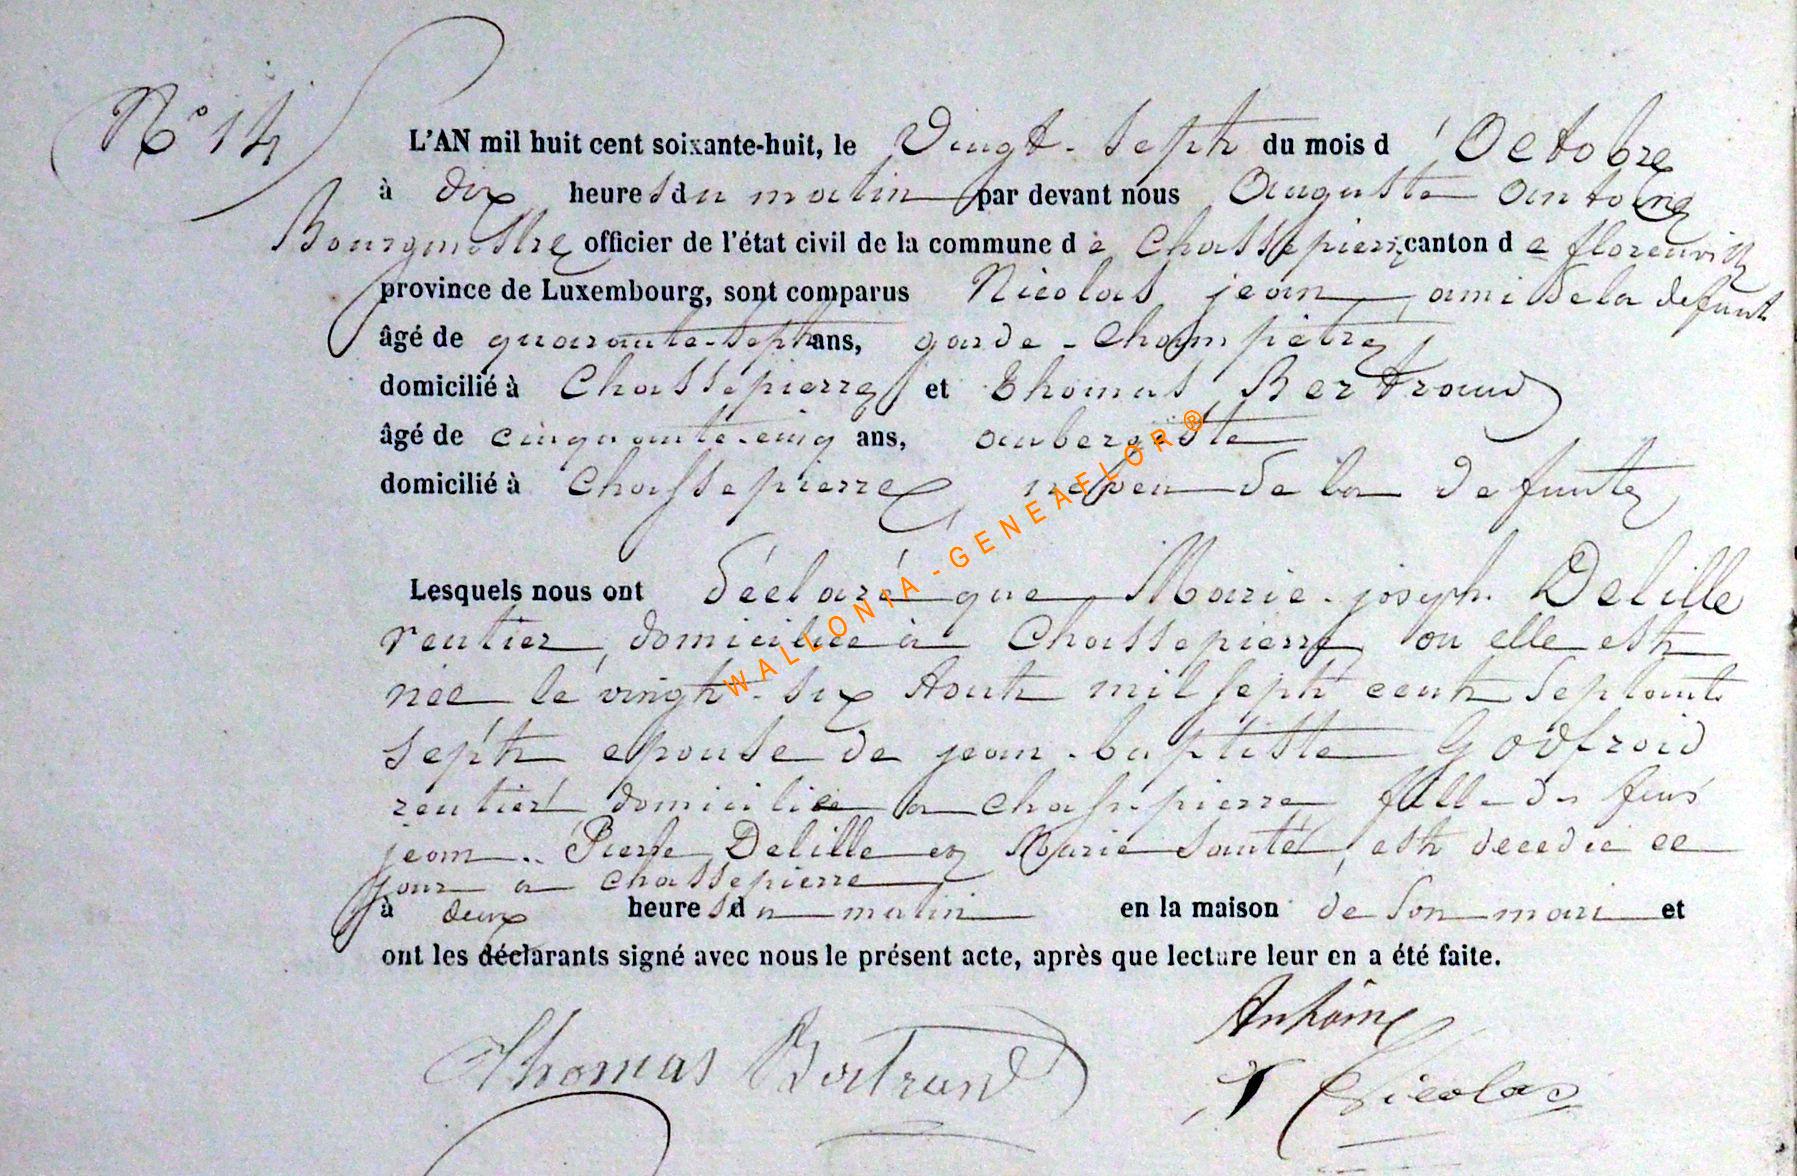 N° 14
L'AN mil huit cent soixante-huit, le Vingt-Sept du mois d'Octobre
à dix heures du matin par devant nous Auguste Antoine
Bourgmestre officier de l'état civil de la commune de Chassepierre canton de florenville
province de Luxembourg, sont comparus Nicolas jean, ami de la defunt
âgé de quarante-sept ans, garde-Champêtre,
domicilié à Chassepierre et Thomas Bertrand
âgé de cinquante-cinq ans, aubergiste
domicilié à Chassepierre, neveu de la defunte,
Lesquels nous ont déclaré que Marie-joseph Delille
rentier, domiciliée à Chassepierre ou elle est
née le vingt-six Aout mil sept cent Septante
sept epouse de jean-baptiste Godfroid
rentier, domicilié a chassepierre, fille de feus
jean-Pierre Delille et Marie Santé, est decedée ce
jour a chassepierre
à deux heures du matin en la maison de Son mari et
ont les déclarants signé avec nous le présent acte, après que lecture leur en a été faite.
Antoine
Thomas Bertrand J Nicolas
WALLONIA-GENEAFLOR®